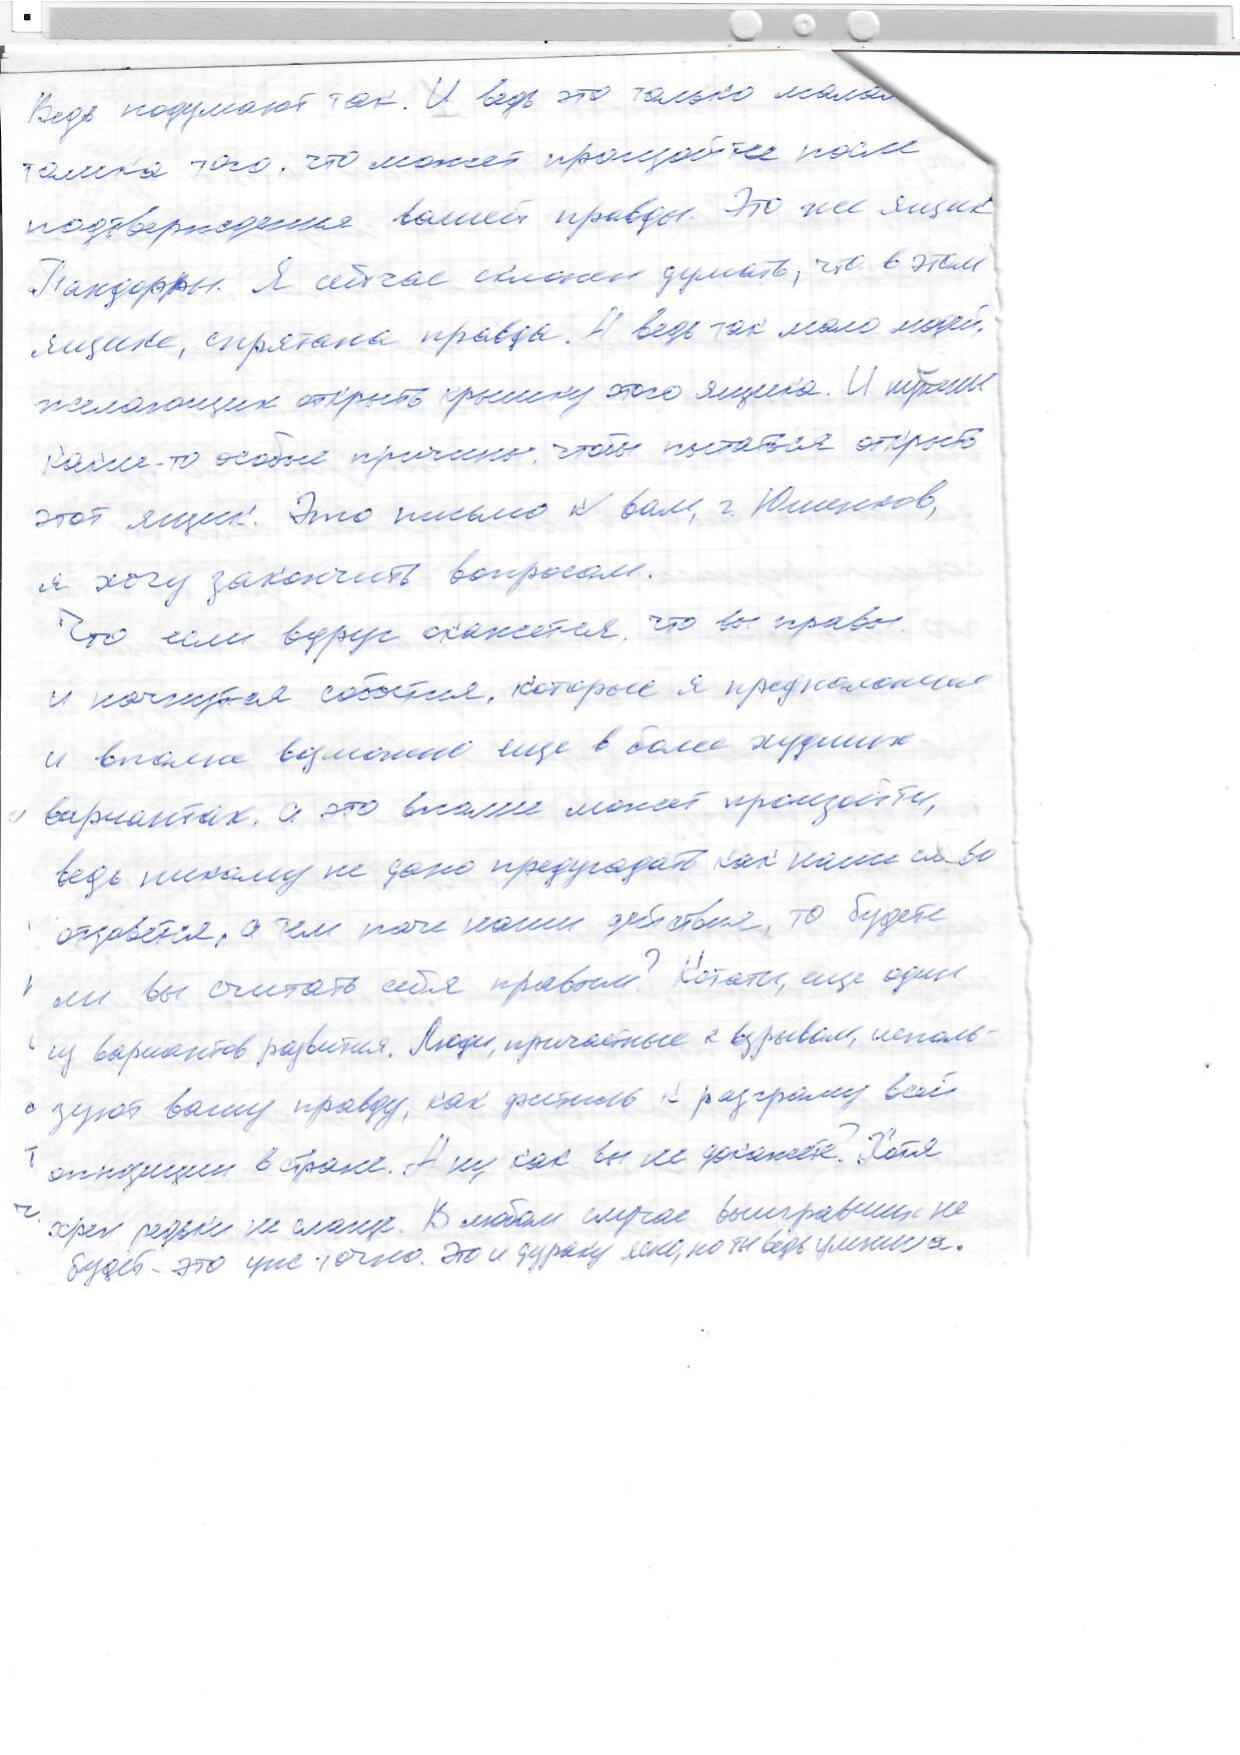 Ведь подумают так. И ведь это только малая
толика того, что может произойти после
подтверждения вашей правды. Это же ящик
Пандоры. Я сейчас склонен думать, что в этом
ящике, спрятана правда. А ведь так мало людей,
желающих открыть крышку этого ящика. И нужны
какие-то особые причины, чтобы пытаться открыть
этот ящик. Это письмо к вам, г. Юшенков,
я хочу закончить вопросом.
Что если вдруг окажется, что вы правы
и начнутся события, которые я предположил
и вполне возможно еще в более худших
вариантах, а это вполне может произойти,
ведь никому не дано предугадать как наше слово
отзовется, а тем паче наши действия, то будете
ли вы считать себя правым? Кстати, еще один
из вариантов развития. Люди, причастные к взрывам, исполь-
зуют вашу правду, как фитиль к разгрому всей
оппозиции в стране. А ну, как вы не докажете? Хотя
хрен редьки не слаще. В любом случае выигравших не
будет - это уже точно. Это и дураку ясно, но ты ведь умница.